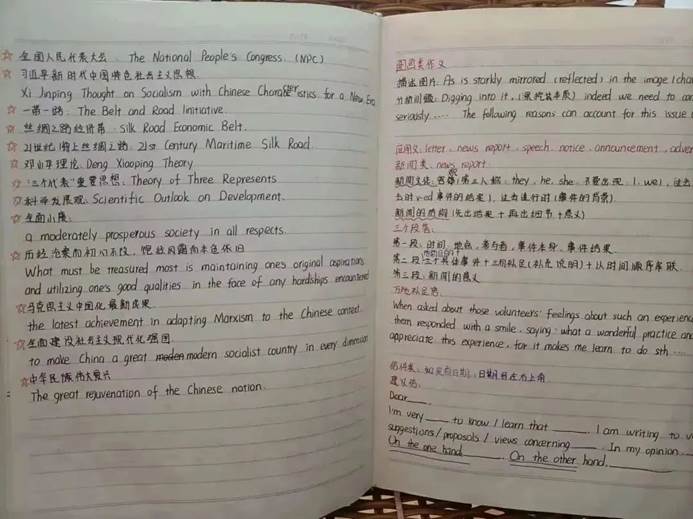 全国人民代表大会. The National People's Congress. (NPC)
习近平新时代中国特色社会主义思想.
Xi Jinping Thought on Socialism with Chinese Characteristics for a New Era
一带一路. The Belt and Road Initiative.
丝绸之路经济带. Silk Road Economic Belt.
21世纪海上丝绸之路. 21st Century Maritime Silk Road.
邓小平理论. Deng Xiaoping Theory
"三个代表"重要思想. Theory of Three Represents
科学发展观. Scientific Outlook on Development.
全面小康.
a moderately prosperous society in all respects.
历经沧桑而初心不改, 饱经风霜而本色依旧
What must be treasured most is maintaining one's original aspirations
and utilizing one's good qualities in the face of any hardships encountered
马克思主义中国化最新成果
the latest achievement in adapting Marxism to the Chinese context.
全面建设社会主义现代化强国
to make China a great modern socialist country in every dimension
中华民族伟大复兴
The great rejuvenation of the Chinese nation.
图画类作文
描述图片: As is starkly mirrored (reflected) in the image
Digging into it, indeed we need to
seriously...... The following reasons can account for this issue
应用文: letter, news report, speech, notice, announcement,
新闻类: news report
第三人称. they, he, she. 不要出现 I, we),
出时 (事件的结果), (事件的背景)
新闻的 (先出结果 + 再出细节 + 意义)
三个段落:
第一段: 时间, 地点, 参与者, 事件本身, 事件结果.
第二段: 具体事件 + (补充说明) + 以时间顺序串联
第三段: 新闻的意义
万能补充句:
When asked about those volunteers' feelings about such an experience
them responded with a smile, saying: what a wonderful practice and
appreciate this experience, for it makes me learn to do sth ......
日期在左上角.
建议信:
Dear ____,
I'm very ____ to know / learn that ____. I am writing to
suggestions / proposals / views concerning ____. In my opinion
On the one hand ____. On the other hand, ____